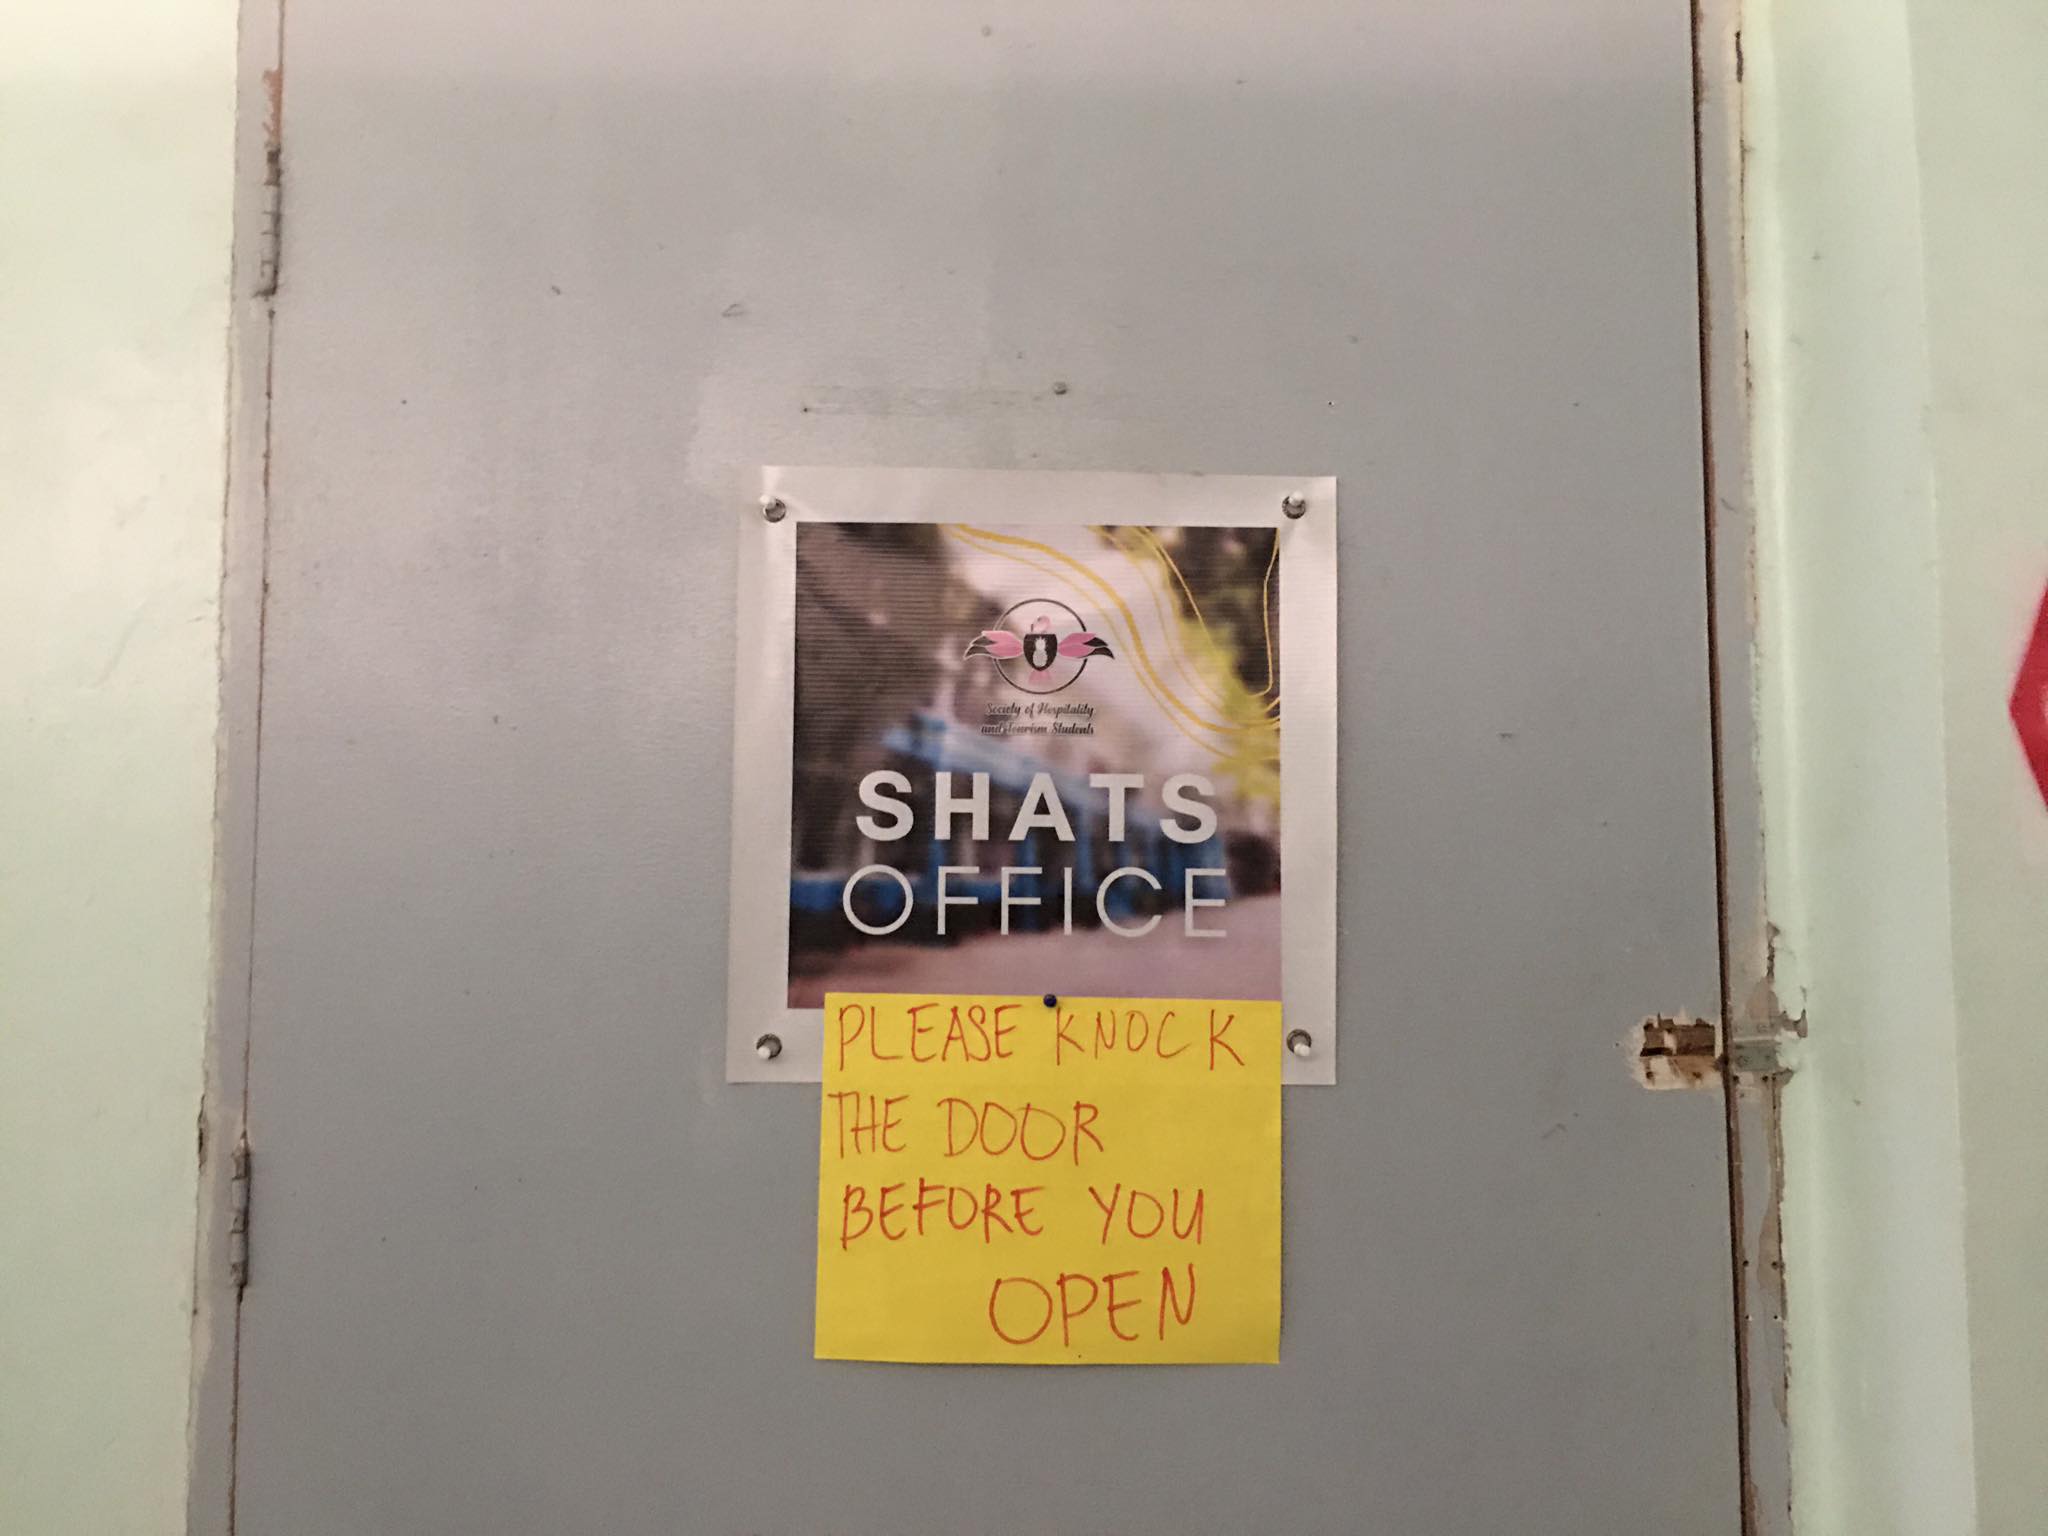 Society of Hospitality
and Tourism Students
SHATS
OFFICE
PLEASE KNOCK
THE DOOR
BEFORE YOU
OPEN